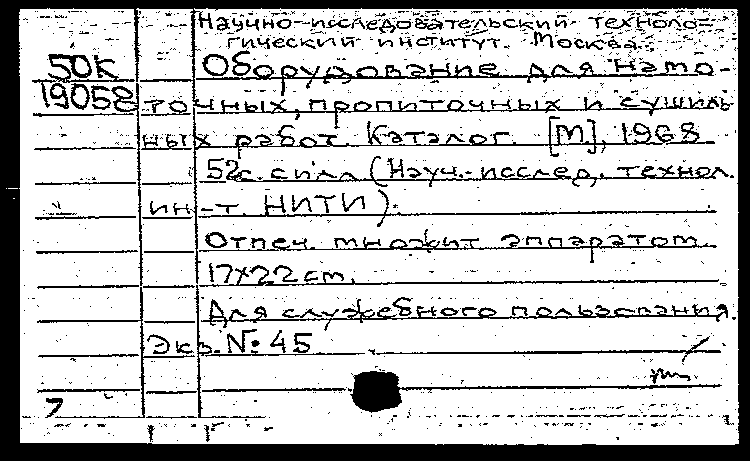 Научно-исследовательский техноло=
гический институт. Москва.
50К Оборудование для намо-
19058 точных, пропиточных и сушиль
ных работ. Каталог. [М.], 1968
52с. с илл (Науч.-исслед. технол.
ин-т. НИТИ).
Отпеч. множит аппаратом
17х22 cm.
Для служебного пользования.
Экз. №: 45
7